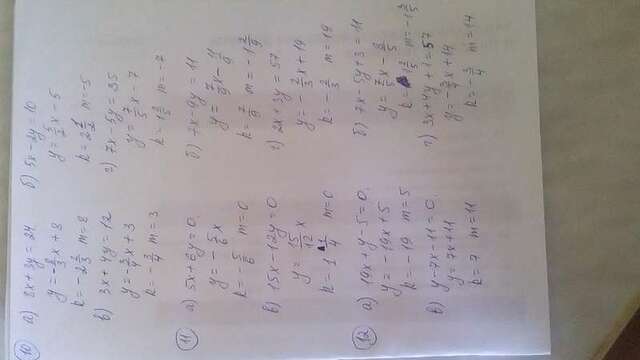 10 а) 8x+3y=24
y=-8/3x+8
k=-2 2/3 m=8
б) 5x-2y=10
y=5/2x-5
k=2 1/2 m=-5
в) 3x+4y=12
y=-3/4x+3
k=-3/4 m=3
г) 7x-5y=35
y=7/5x-7
k=1 2/5 m=-7
11 а) 5x+6y=0
y=-5/6x
k=-5/6 m=0
б) 7x-9y=11
y=7/9x-11/9
k=7/9 m=-1 2/9
в) 15x-12y=0
y=15/12x
k=1 1/4 m=0
г) 2x+3y=57
y=-2/3x+19
k=-2/3 m=19
12 а) 19x+y-5=0
y=-19x+5
k=-19 m=5
б) 7x-5y+3=11
y=7/5x-8/5
k=1 2/5 m=-1 3/5
в) y-7x-11=0
y=7x+11
k=7 m=11
г) 3x+4y+1=57
y=-3/4x+14
k=-3/4 m=14